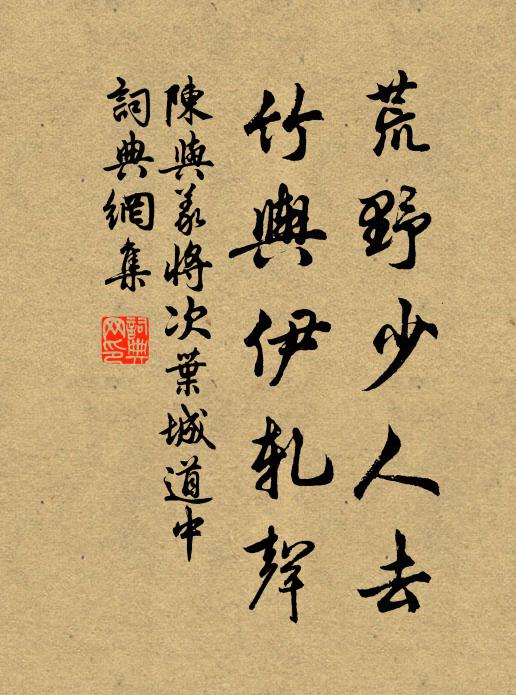 荒野少人去
竹輿伊軋聲
陳與義將次葉城道中
詞典網集
詞典网印